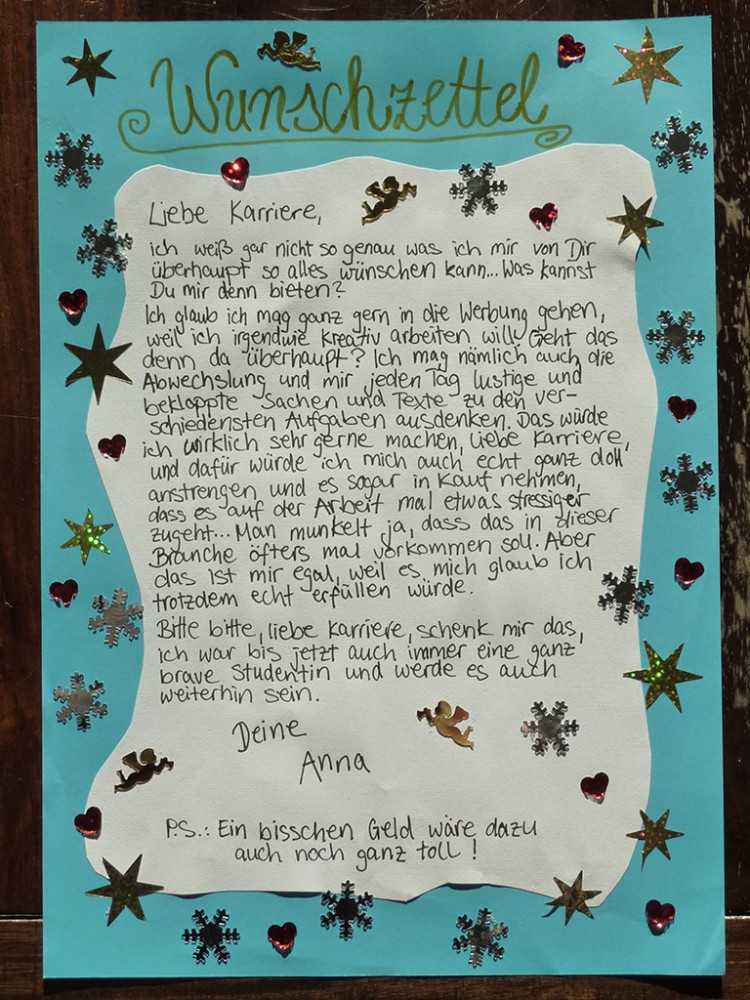 Wunschzettel
Liebe Karriere,
ich weiß gar nicht so genau was ich mir von Dir
überhaupt so alles wünschen kann... Was kannst
Du mir denn bieten?
Ich glaub ich mag ganz gern in die Werbung gehen,
weil ich irgendwie kreativ arbeiten will. Geht das
denn da überhaupt? Ich mag nämlich auch die
Abwechslung und mir jeden Tag lustige und
bekloppte Sachen und Texte zu den ver-
schiedensten Aufgaben ausdenken. Das würde
ich wirklich sehr gerne machen, liebe Karriere,
und dafür würde ich mich auch echt ganz doll
anstrengen und es sogar in Kauf nehmen,
dass es auf der Arbeit mal etwas stressiger
zugeht... Man munkelt ja, dass das in dieser
Branche öfters mal vorkommen soll. Aber
das ist mir egal, weil es mich glaub ich
trotzdem echt erfüllen würde.
Bitte bitte, liebe Karriere, schenk mir das,
ich war bis jetzt auch immer eine ganz
brave Studentin und werde es auch
weiterhin sein.
Deine
Anna
P.S.: Ein bisschen Geld wäre dazu
auch noch ganz toll!